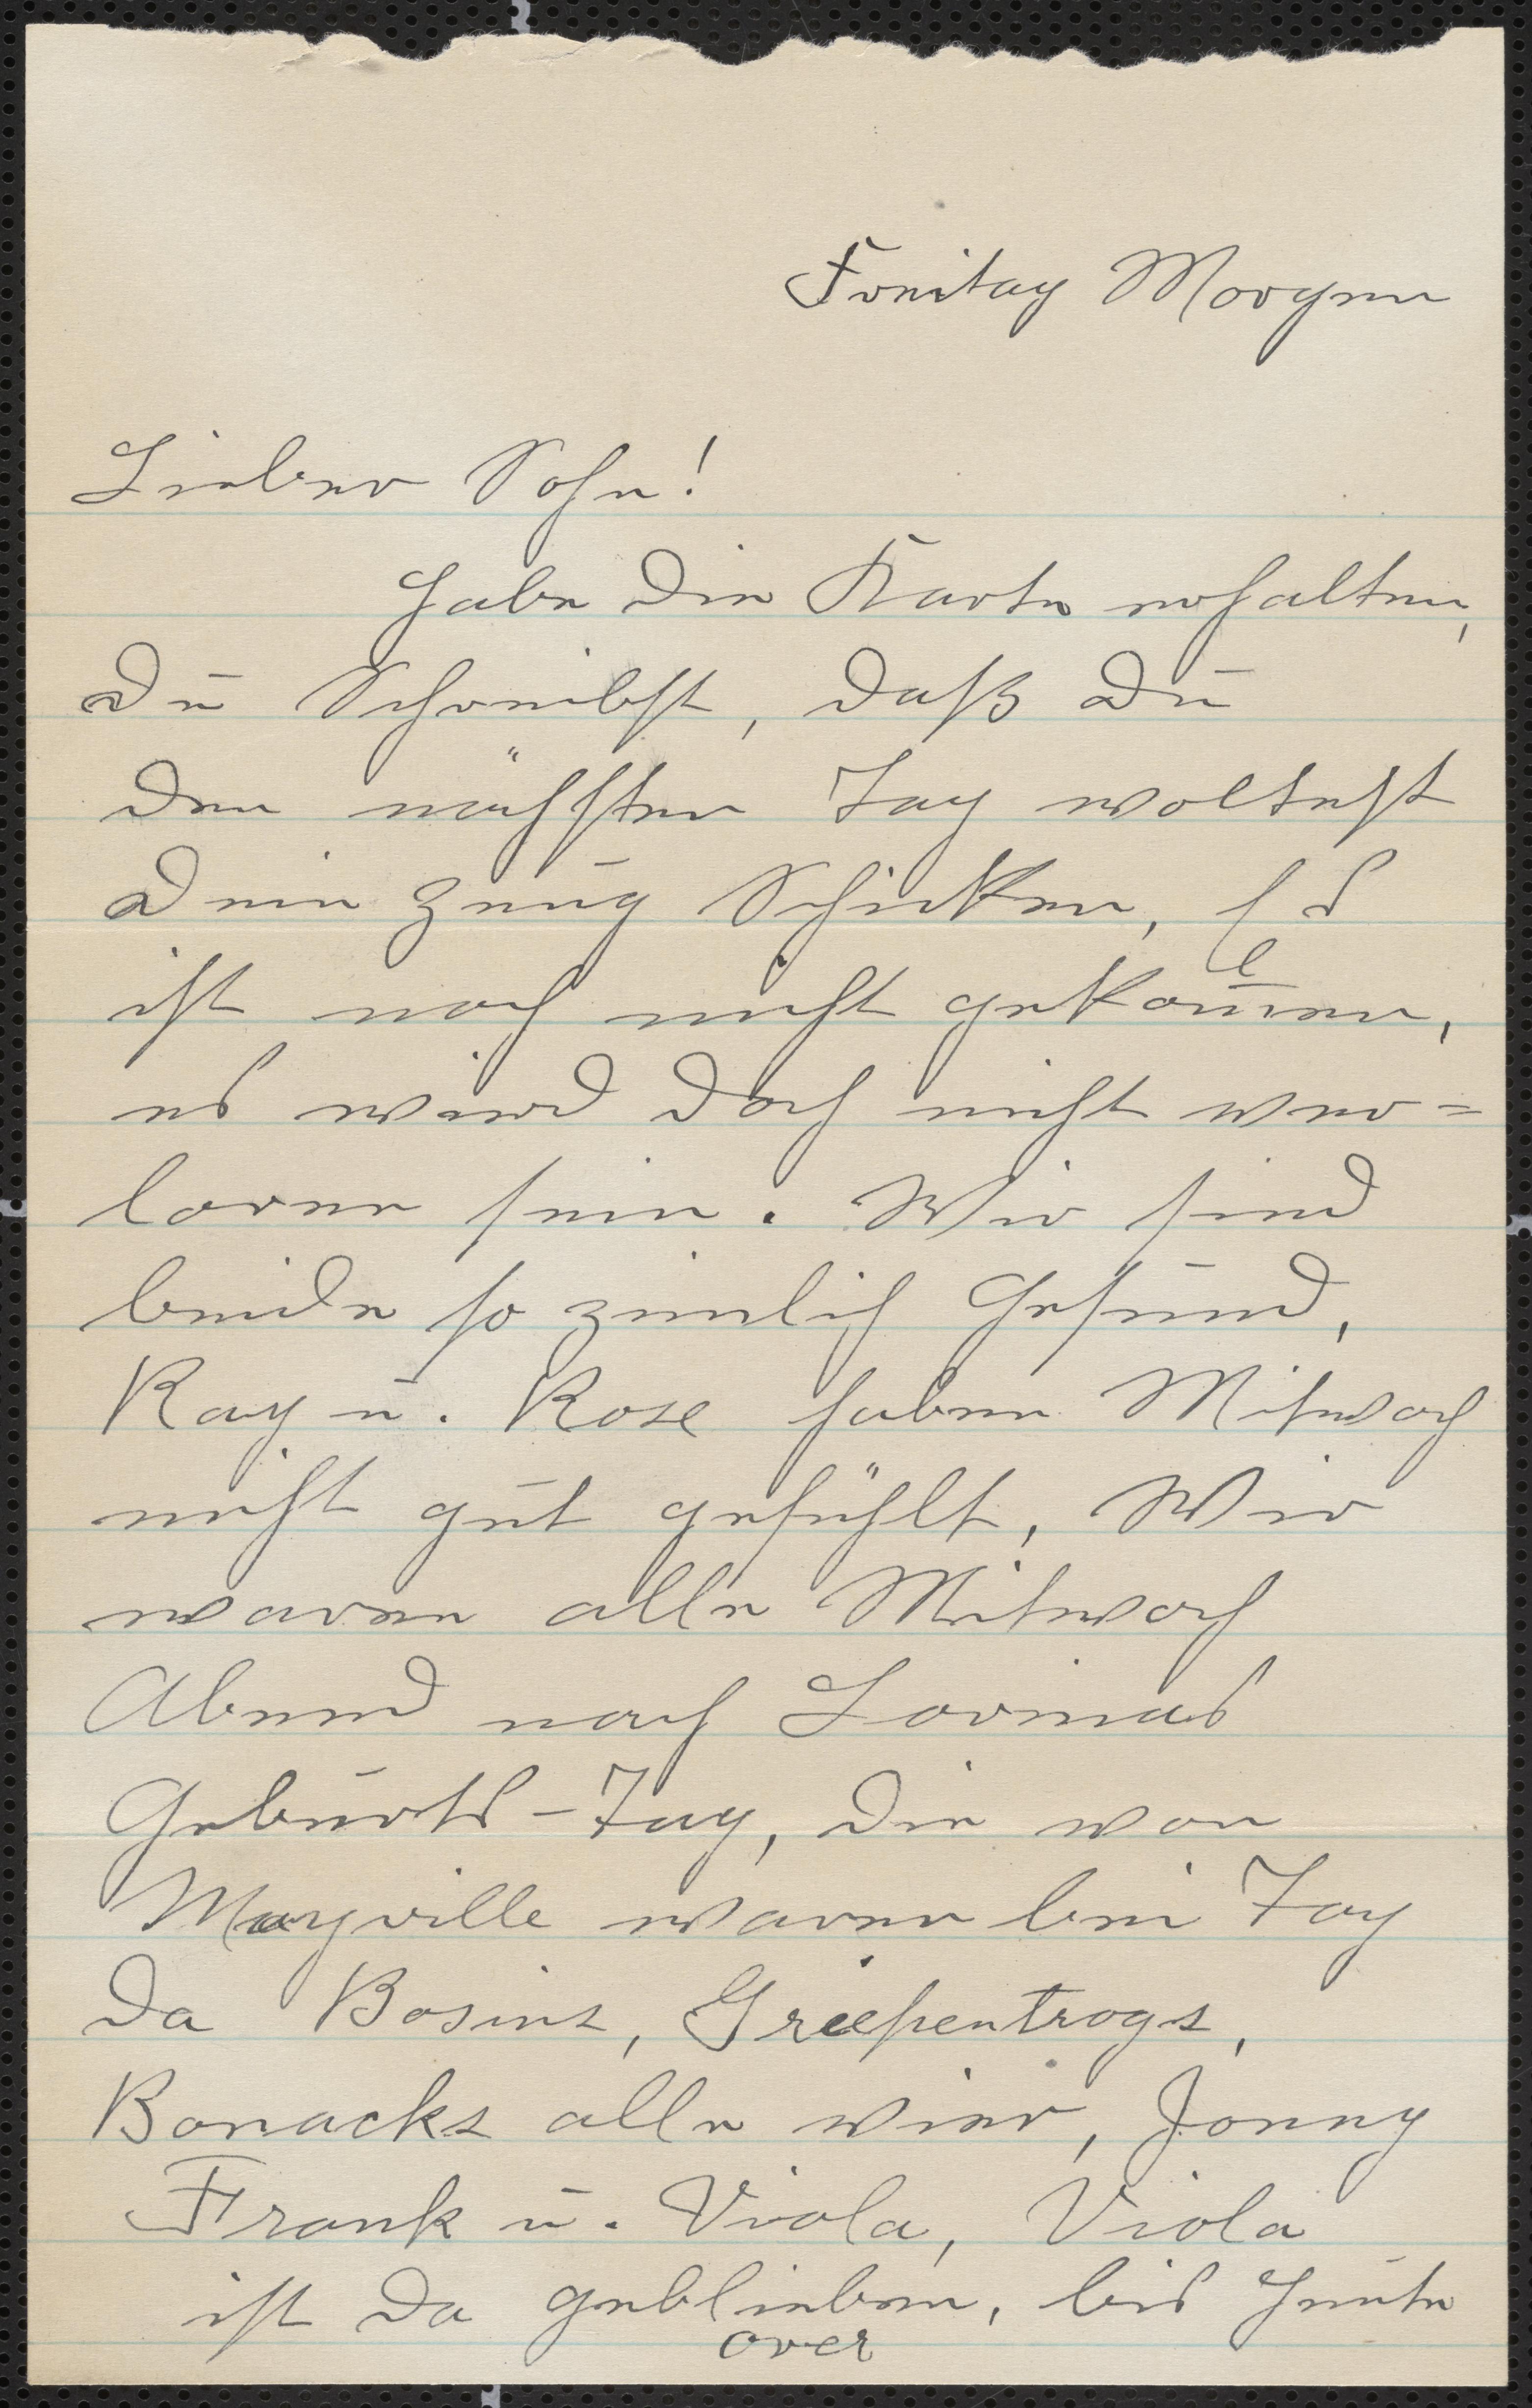 Freitag Morgen
Lieber Sohn!
Habe die Karte erhalten,
Du Schreibst, daß Du
den nächsten Tag woltest
Dein Zeug Schicken, Es
ist noch nicht gekom̅en,
es wird doch nicht ver=
loren sein. Wir sind
beide so zimlich Gesund,
Ray u. Rose haben Mitwoch
nicht gut gefühlt, Wir
waren alle Mitwoch
Abend nach Lornas
Geburts-Tag, die von
Mayville waren bei Tag
da Bosins, Griepentrogs,
Bonacks alle vier, Jonny
Frank u. Viola, Viola
ist da geblieben, bis Heute
over